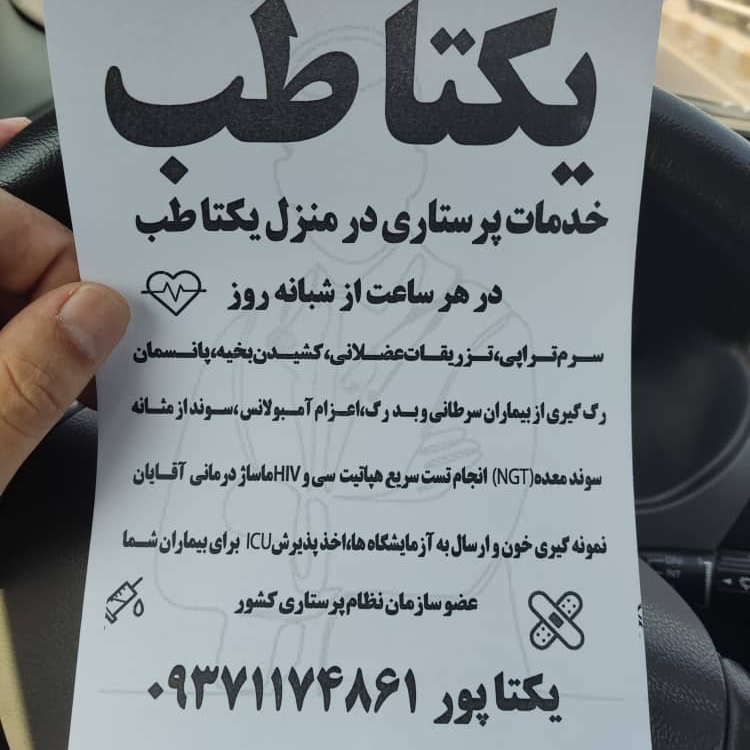 یکتا طب
خدمات پرستاری در منزل یکتا طب
در هر ساعت از شبانه روز
سرم‌تراپی، تزریقات عضلانی، کشیدن بخیه، پانسمان
رگ گیری از بیماران سرطانی و بد رگ، اعزام آمبولانس، سوند از مثانه
سوند معده (NGT) انجام تست سریع هپاتیت سی و HIV ماساژ درمانی آقایان
نمونه گیری خون و ارسال به آزمایشگاه ها، اخذ پذیرش ICU برای بیماران شما
عضو سازمان نظام پرستاری کشور
یکتا پور ۰۹۳۷۱۱۷۴۸۶۱